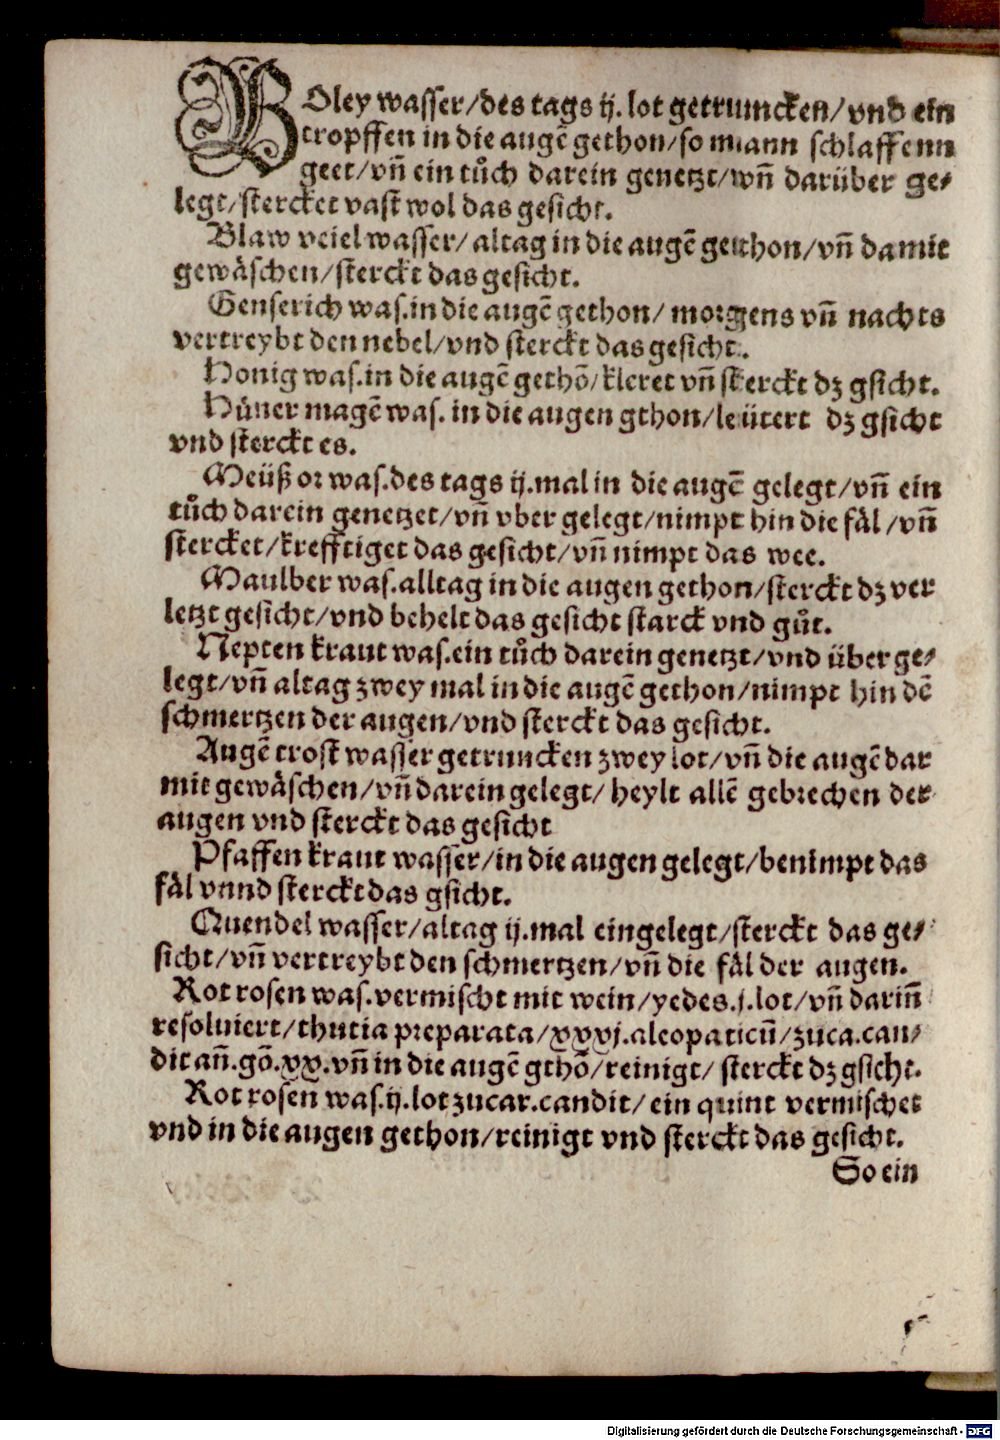 BOley wasser/des tags ij. lot getruncken/vnd ein
tropffen in die augē gethon/so mann schlaffenn
geet/vn̄ ein tůch darein genetzt/wn̄ darüber ge⸗
legt/stercket vast wol das gesicht.
Blaw veiel wasser/altag in die augē gethon/vn̄ damit
gewäschen/sterckt das gesicht.
Genserich was.in die augē gethon/ morgens vn̄ nachts
vertreybt den nebel/vnd sterckt das gesicht.
Honig was.in die augē gethō/kleret vn̄ sterckt dz gsicht.
Hüner magē was. in die augen gthon/leütert dz gsicht
vnd sterckt es.
Meüß or was.des tags ij.mal in die augē gelegt/vn̄ ein
tůch darein genetzet/vn̄ vber gelegt/nimpt hin die fäl/vn̄
stercket/krefftiget das gesicht/vn̄ nimpt das wee.
Maulber was.alltag in die augen gethon/sterckt dz ver
letzt gesicht/vnd behelt das gesicht starck vnd gůt.
Nepten kraut was.ein tůch darein genetzt/vnd über ge⸗
legt/vn̄ altag zwey mal in die augē gethon/nimpt hin dē
schmertzen der augen/vnd sterckt das gesicht.
Augē trost wasser getruncken zwey lot/vn̄ die augē dar
mit gewäschen/vn̄ darein gelegt/ heylt allē gebrechen der
augen vnd sterckt das gesicht
Pfaffen kraut wasser/in die augen gelegt/benimpt das
fäl vnnd sterckt das gsicht.
Quendel wasser/altag ij.mal eingelegt/sterckt das ge⸗
sicht/vn̄ vertreybt den schmertzen/vn̄ die fäl der augen.
Rot rosen was.vermischt mit wein/yedes.j.lot/vn̄ darin̄
resoluiert/thutia preparata/xxxj.aleopaticū/zuca.can⸗
dit an̄.gō.xx.vn̄ in die augē gthō/reinigt/ sterckt dz gsicht.
Rot rosen was.ij.lot zucar.candit/ein quint vermischet
vnd in die augen gethon/reinigt vnd sterckt das gesicht.
So ein
Digitalisierung gefördert durch die Deutsche Forschungsgemeinschaft - DFG